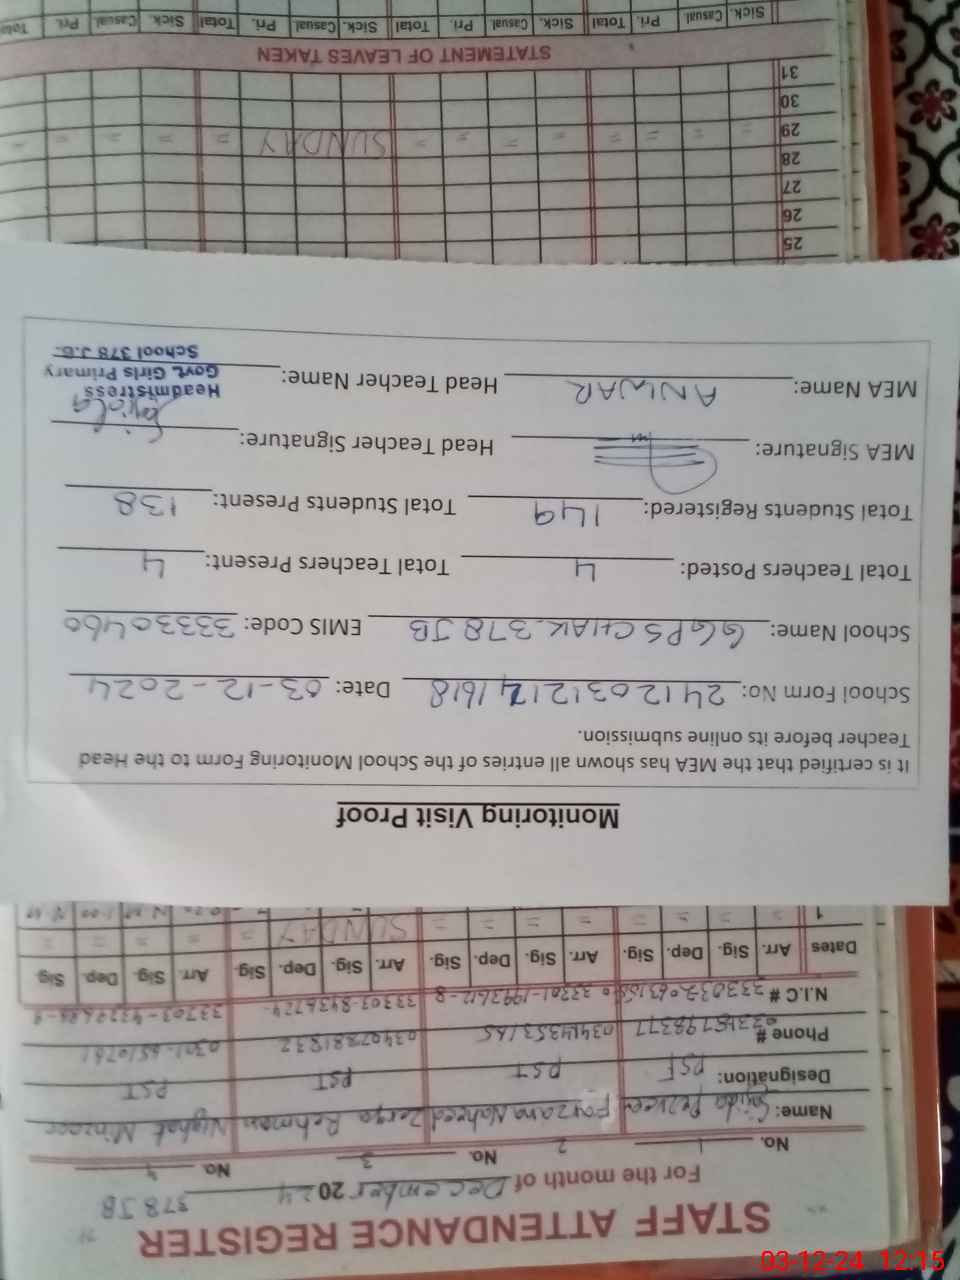 STAFF ATTENDANCE REGISTER
For the month of December 2024 378 JB
No. 1 2 No. 3 No. 4
Name: Perveen Naheed Zerqa Rehman Nighat
Designation: PST PST PST PST
Phone #
N.I.C #
Dates Arr. Sig. Dep. Sig. Arr. Sig. Dep. Sig. Arr. Sig. Dep. Sig. Arr. Sig. Dep. Sig.
1 = = = = = = = = SUNDAY = = = = =
Monitoring Visit Proof
It is certified that the MEA has shown all entries of the School Monitoring Form to the Head
Teacher before its online submission.
School Form No: Date: 03-12-2024
School Name: GGPS CHAK 378 JB EMIS Code: 33330460
Total Teachers Posted: 4 Total Teachers Present: 4
Total Students Registered: 149 Total Students Present: 138
MEA Signature: Head Teacher Signature:
MEA Name: ANWAR Head Teacher Name:
Headmistress
Govt. Girls Primary
School 378 J.B.
25
26
27
28
29 = = = = = = = = SUNDAY = = = = =
30
31
STATEMENT OF LEAVES TAKEN
Sick. Casual Pri. Total Sick. Casual Pri. Total Sick. Casual Pri. Total Sick. Casual Pri. Total
03-12-24 12:15